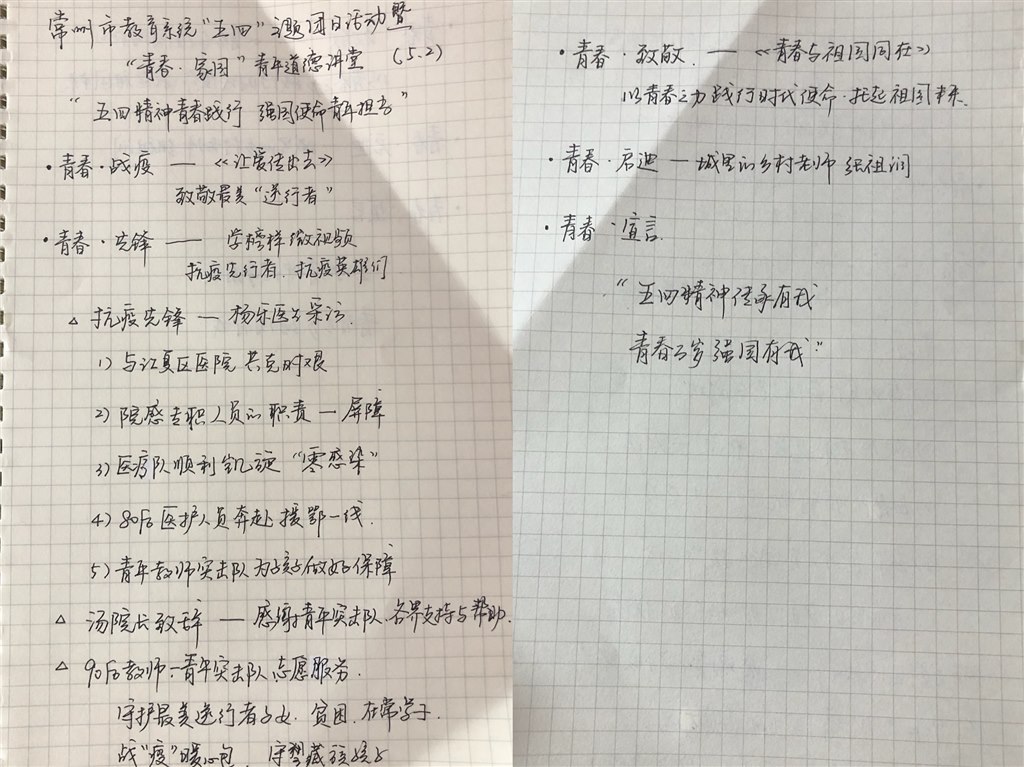 常州市教育系统“五四”主题团日活动暨
“青春·家国”青年道德讲堂 (5.2)
“五四精神青春践行 强国使命青年担当”
·青春·战疫 — 《让爱传出去》
致敬最美“逆行者”
·青春·先锋 — 学榜样微视频
抗疫先行者、抗疫英雄们
△ 抗疫先锋 — 杨乐医生采访.
1) 与江夏区医院共克时艰
2) 院感专职人员的职责 — 屏障
3) 医疗队顺利凯旋“零感染”
4) 80后医护人员奔赴援鄂一线.
5) 青年教师突击队为孩子做好保障
△ 汤院长致辞 — 感谢青年突击队、各界支持与帮助.
△ 90后教师:青年突击队志愿服务.
守护最美逆行者子女、贫困、在常学子.
战“疫”暖心包、守望藏孩子
·青春·致敬. — 《青春与祖国同在》
以青春之力践行时代使命·托起祖国未来.
·青春·启迪 — 城里的乡村老师 张祖润
·青春·宣言.
“五四精神传承有我
青春万岁强国有我”